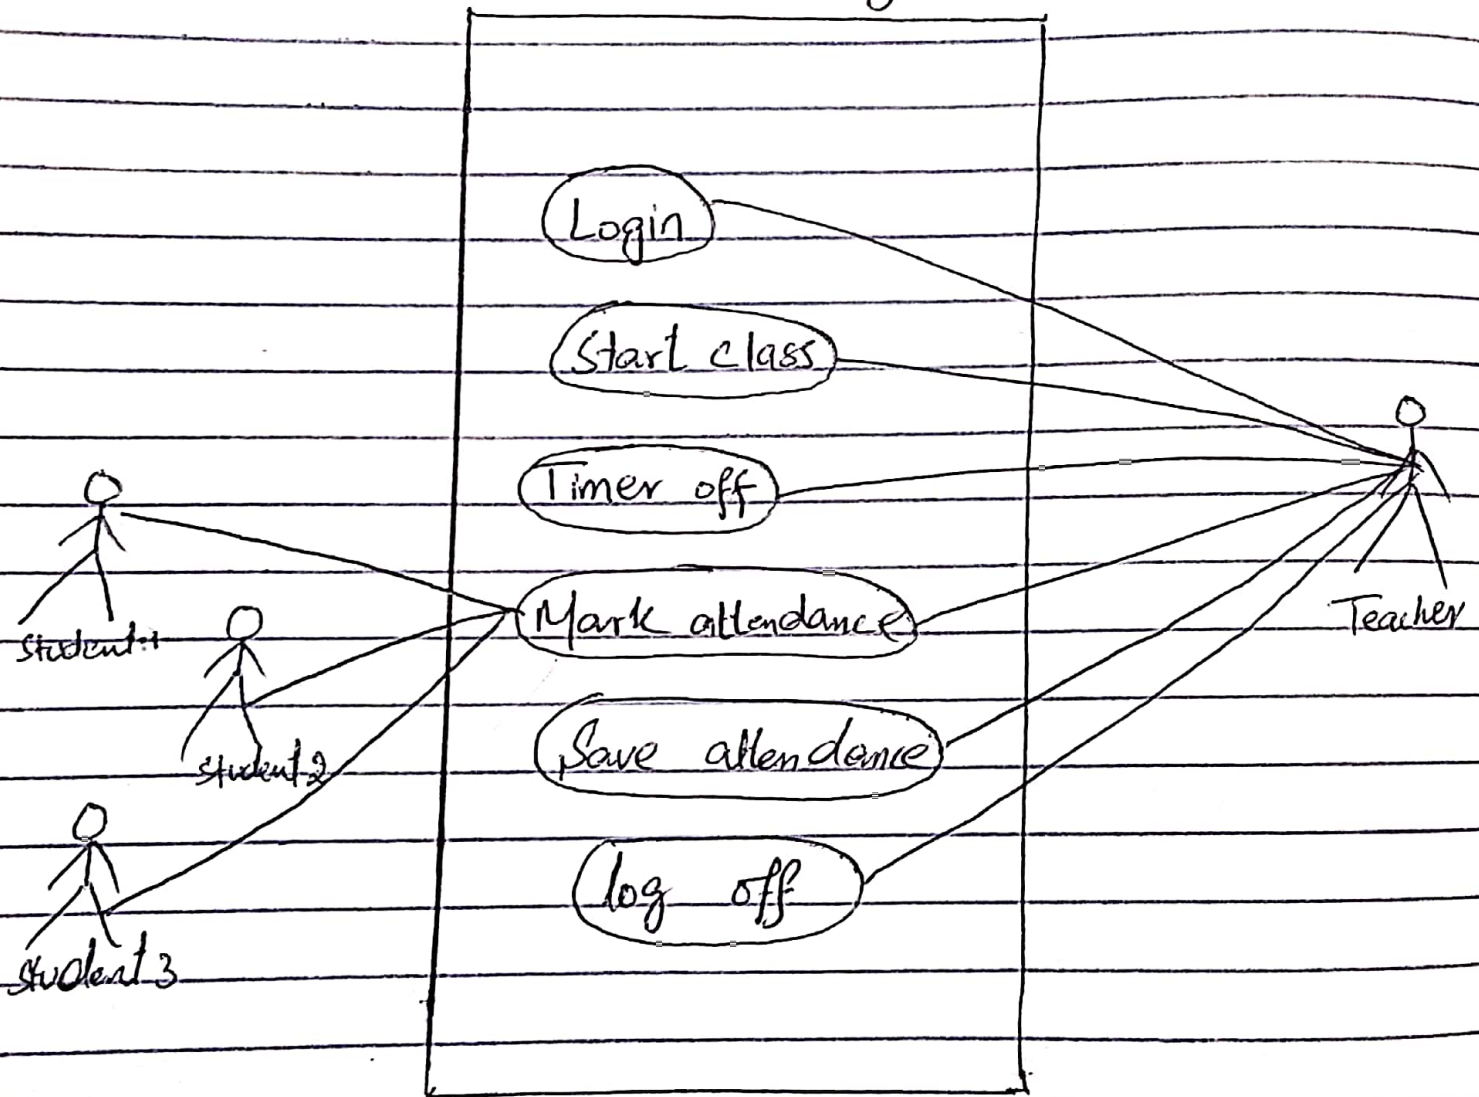 Login
Start class
Timer off
Mark attendance
Save attendance
log off
Student 1
Student 2
Student 3
Teacher